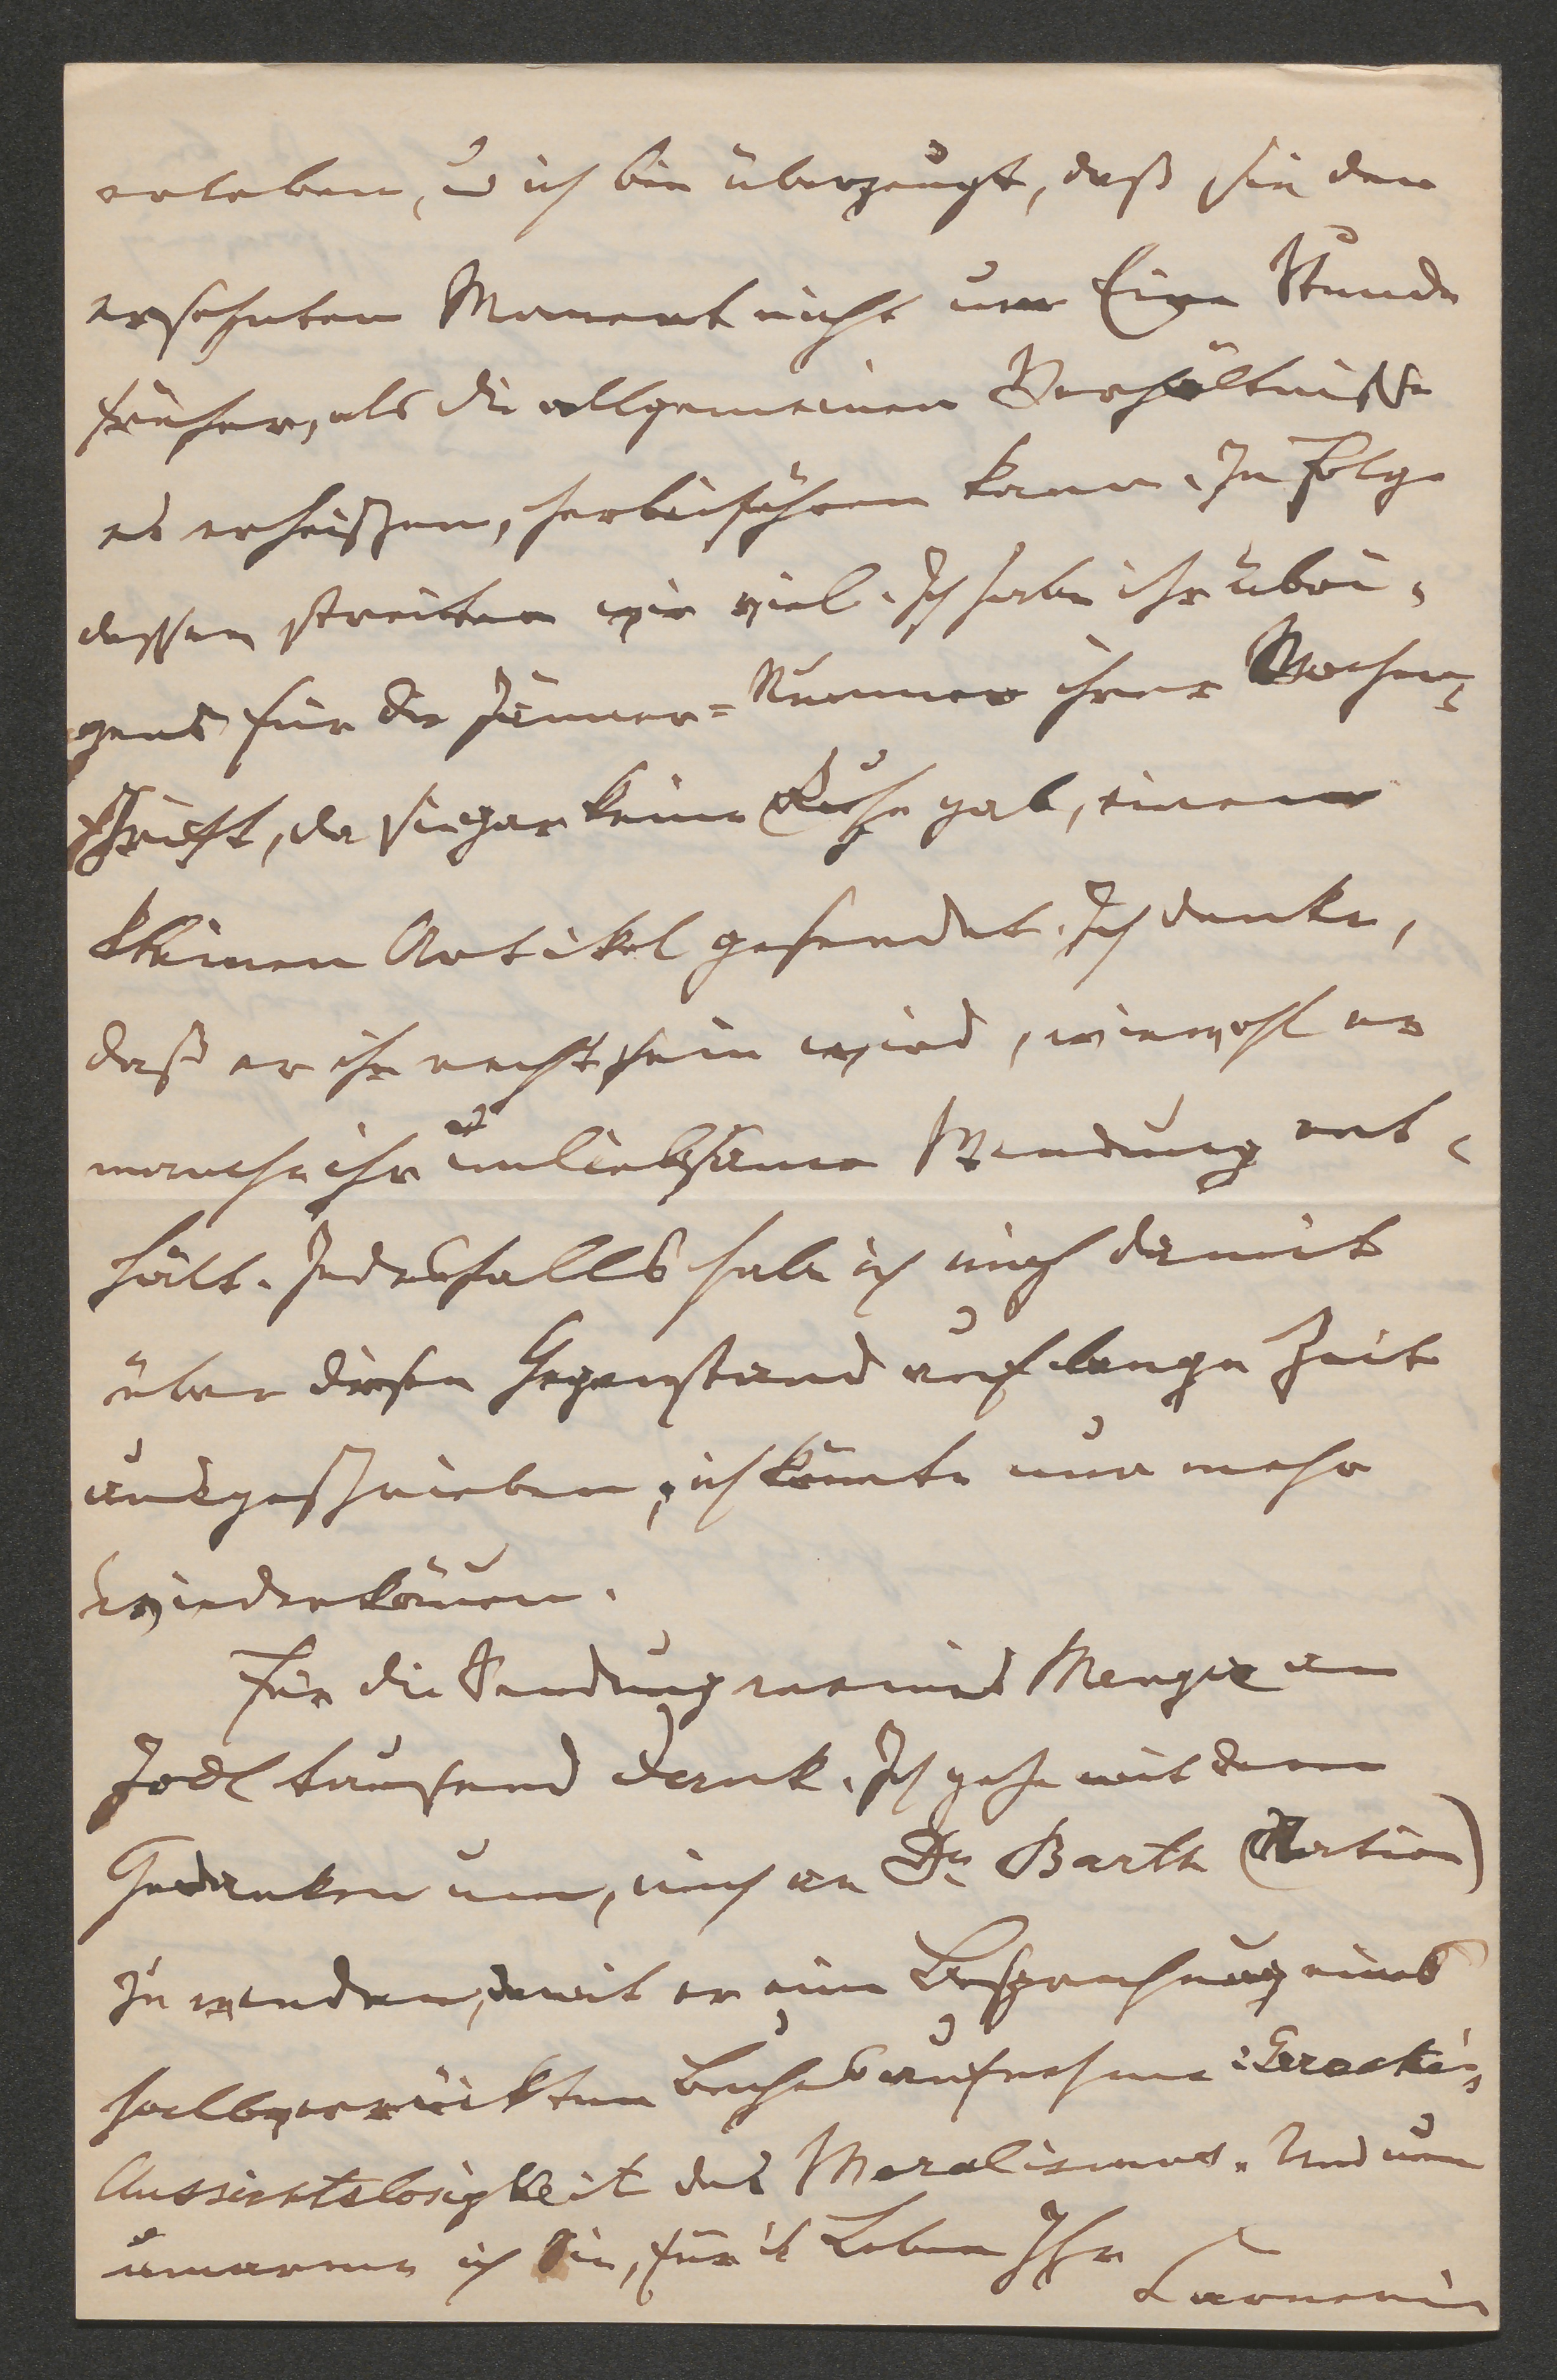 erleben, u ich bin überzeugt, daß sie den
ersehnten Moment nicht um Eine Stunde
früher, als die allgemeinen Verhältnisse
es erheischen, herbeiführen kann. In Folge
dessen streiten wir viel. Ich habe ihr übri-
gens für die Jänner-Nummer ihrer Wochen-
schrift, da sie gar keine Ruhe gab, einen
kleinen Artikel gesendet. Ich denke,
daß er ihr recht sein wird, wiewohl er
manche ihr unliebsame Wendung ent-
hält. Jedenfalls habe ich mich damit
über diesen Gegenstand auf lange Zeit
ausgeschrieben, ich könnte nur mehr
wiederkäuen.
Für die Sendung meines an
Jodl tausend Dank. Ich gehe mit dem
Gedanken um, mich an Dr Barth (Nation)
zu wenden, damit er eine Besprechung eines
halbverrückten Buches aufnehme:
Aussichtslosigkeit des Moralismus. Und nun
umarme ich Sie, für's Leben Ihr
Carneri